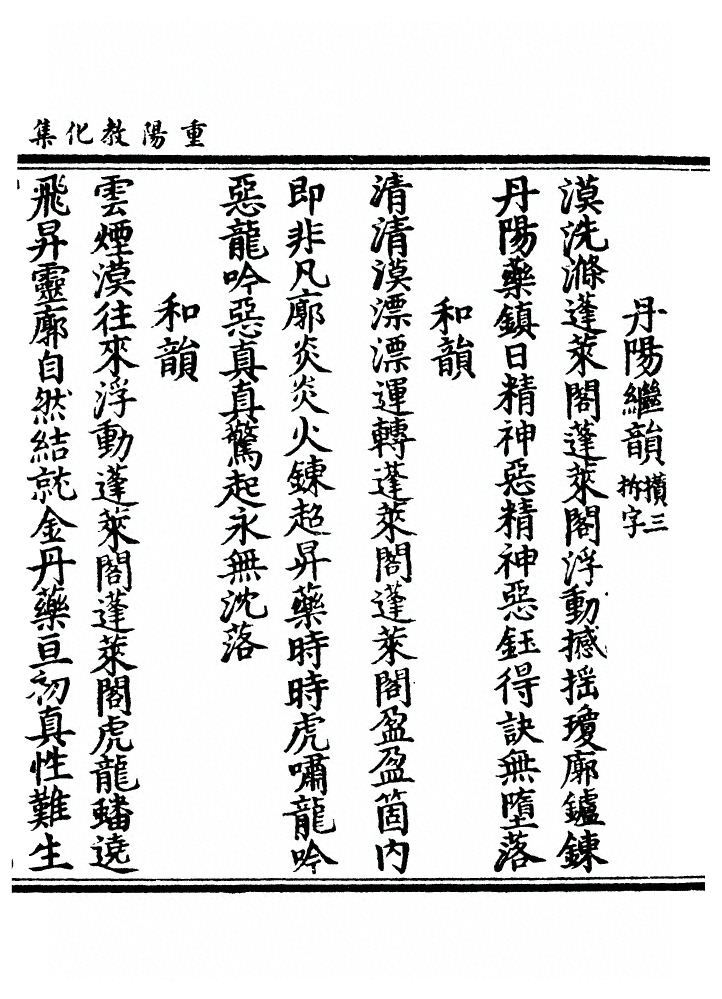 重陽教化集
丹陽繼韻攢三拆字
漠洗滌蓬萊閣蓬萊閣浮動撼摇瓊廓鑪鍊
丹陽藥鎮日精神惡精神惡鈺得訣無墮落
和韻
清清漠漂漂運轉蓬萊閣蓬萊閣盈盈箇内
即非凡廓炎炎火鍊超昇藥時時虎嘯龍吟
惡龍吟惡真真驚起永無沈落
和韻
雲煙漠往來浮動蓬萊閣蓬萊閣虎龍蟠遶
飛昇靈廓自然結就金丹藥亘初真性難生